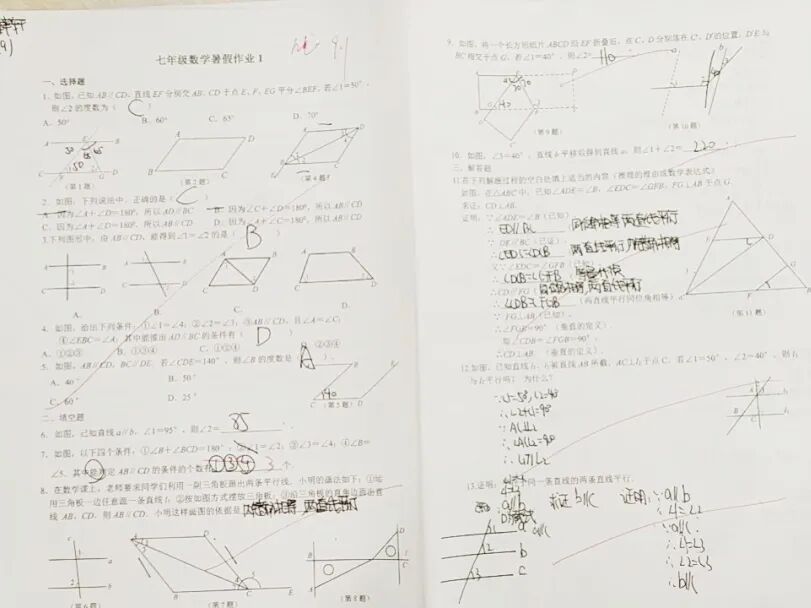 七年级数学暑假作业1
9.1
一、选择题
1、如图,已知AB∥CD,直线EF分别交AB、CD于点E、F,EG平分∠BEF,若∠1=50°,
则∠2的度数为( C )
A、50° B、60° C、65° D、70°
(第1题) (第2题) (第4题)
2、如图,下列说法中,正确的是( C )
A、因为∠A+∠D=180°,所以AD∥BC B、因为∠C+∠D=180°,所以AB∥CD
C、因为∠A+∠D=180°,所以AB∥CD D、因为∠A+∠C=180°,所以AB∥CD
3、下列图形中,由AB∥CD,能得到∠1=∠2的是( B )
A. B. C. D.
4、如图,给出下列条件:①∠1=∠4;②∠2=∠3;③AB∥CD,且∠A=∠C;
④∠EBC=∠A;其中能推出AD∥BC的条件有( D
A、①②③ B、①③④ C、①③④ ②③④
5、如图,AB∥CD,BC∥DE,若∠CDE=140°,则∠B的度数是( A
A、40° B、50°
C、60° D、25°
140
(第5题)
二、填空题
6、如图,已知直线a∥b,∠1=95°,则∠2= 85
7、如图,以下四个条件:①∠B+∠BCD=180°;②∠1=∠2;③∠3=∠4;④∠B=
∠5,其中能判定AB∥CD的条件的个数有 ①③④ 3 个.
8、在数学课上,老师要求同学们利用一副三角板画出两条平行线,小明的画法如下:①运
用三角板一边任意画一条直线l;②按如图方式摆放三角板;③沿三角板的直角边画出直
线AB、CD,则AB∥CD.小明这样画图的依据是
(第6题) (第7题) (第8题)
9、如图,将一个长方形纸片ABCD沿EF折叠后,点C、D分别落在C'、D'的位置,D'E与
BC相交于点G,若∠1=40°,则∠2= 110
(第9题) (第10题)
10、如图,∠3=40°,直线b平移后得到直线a,则∠1+∠2= 220
三、解答题
11.在下列解题过程的空白处填上适当的内容(推理的理由或数学表达式)
如图,在△ABC中,已知∠ADE=∠B,∠EDC=∠GFB,FG⊥AB于点G.
求证:CD⊥AB.
证明:∵∠ADE=∠B(已知)
∴ ED∥BC
∵DE∥BC(已证),
又∵∠EDC=∠GFB(已知)
∴CD∥FG
(两直线平行同位角相等)
∵FG⊥AB(已知),
∴∠FGB=90°(垂直的定义).
即∠CDB=∠FGB=90°,
∴CD⊥AB.(垂直的定义).
(第11题)
12、如图,已知直线l₁、l₂被直线AB所截,AC⊥l₂于点C,若∠1=50°,∠2=40°,则l₁
与l₂平行吗?为什么?
∵∠1=50°,∠2=40°
∴∠2+∠1=90°
∴L1∥L2
13.证明:
同一条直线的两条直线平行.
求证b∥c 证明:∵a∥b
∴∠1=∠2
∵a∥c
∴∠1=∠3
∴∠2=∠3
∴b∥c